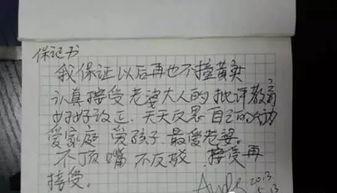 保证书
我保证以后再也不撞黄灯
认真接受老婆大人的批评教育
好好改正，天天反思自己的
爱家庭 爱孩子 最爱老婆。
不顶嘴 不反驳 接受再
接受。
2013
5.13